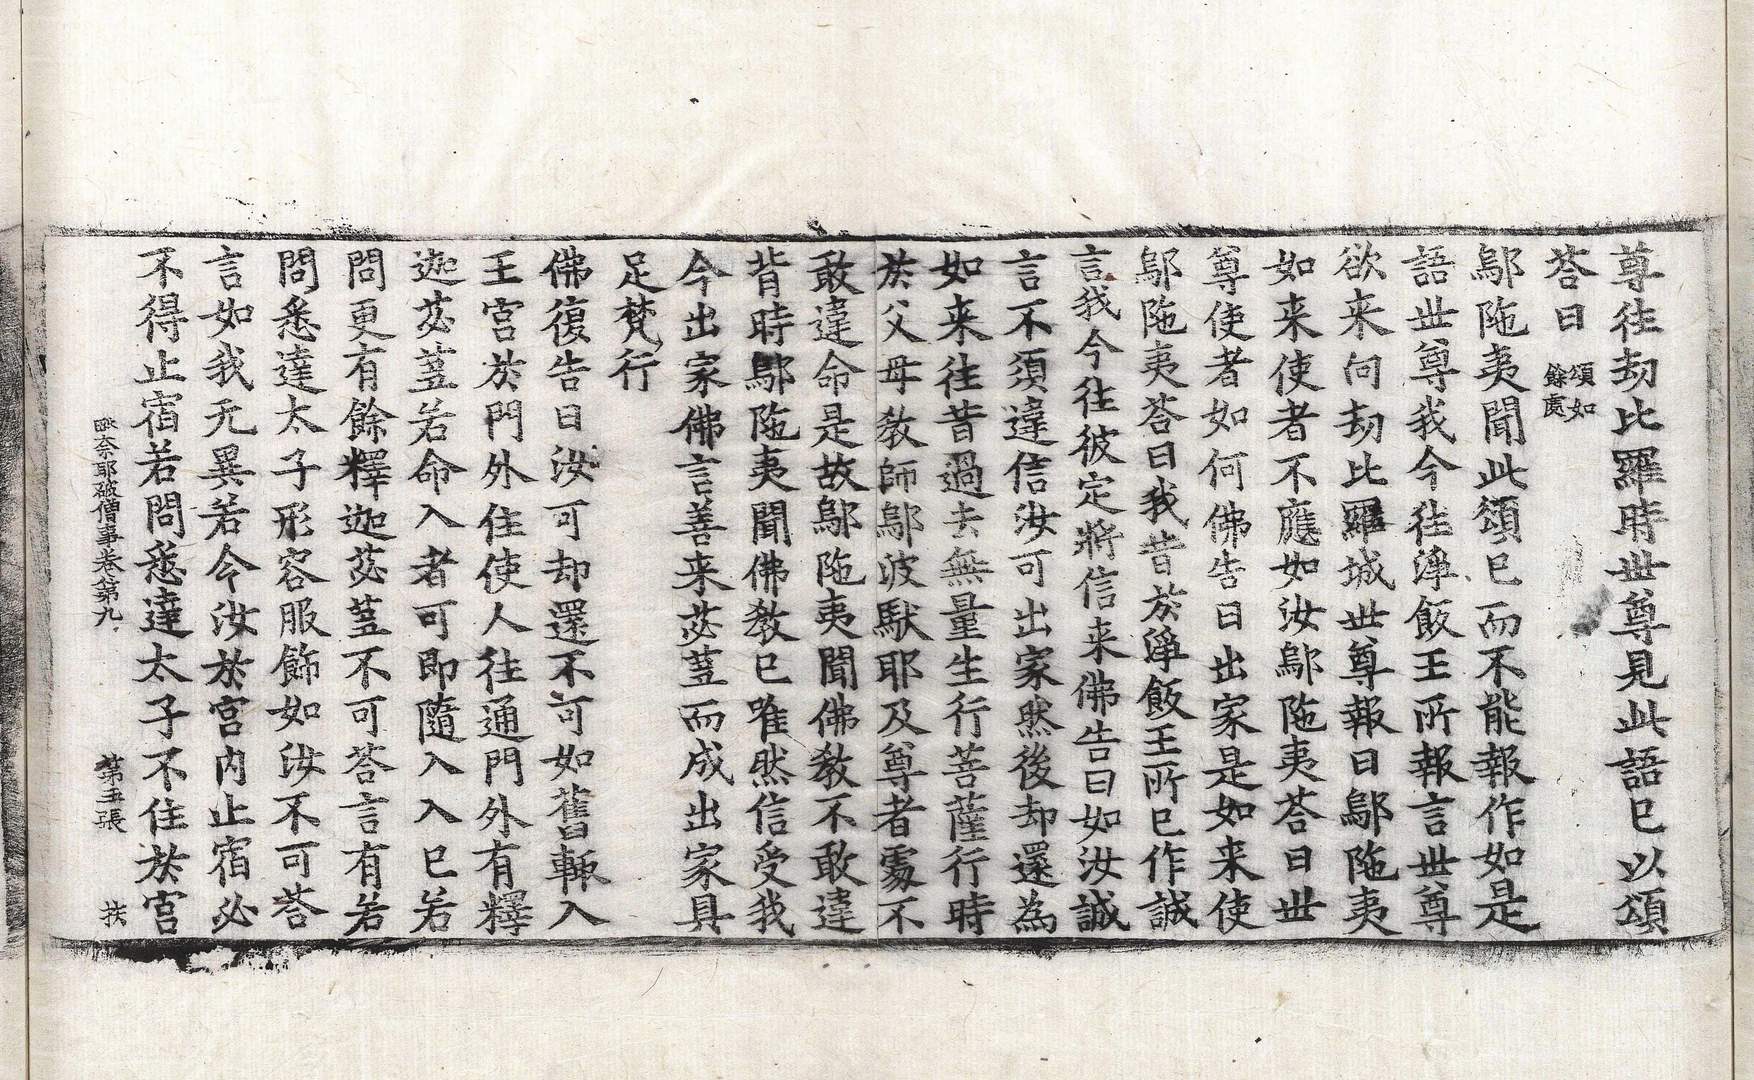 尊往劫比羅時世尊見此語已以頌
荅曰 頌如餘處
鄔陁夷聞此頌已而不能報作如是
語世尊我今往淨飯王所報言世尊
欲来向劫比羅城世尊報曰鄔陁夷
如来使者不應如汝鄔陁夷荅曰世
尊使者如何佛告曰出家是如来使
鄔陁夷荅曰我昔於淨飯王所已作誠
言我今往彼定將信来佛告曰如汝誠
言不須違信汝可出家然後却還為
如来往昔過去無量生行菩薩行時
於父母教師鄔波馱耶及尊者處不
敢違命是故鄔陁夷聞佛教不敢違
背時鄔陁夷聞佛教已唯然信受我
今出家佛言善来苾蒭而成出家具
足梵行
佛復告曰汝可却還不可如舊輙入
王宮於門外住使人往通門外有釋
迦苾蒭若命入者可即隨入入已若
問更有餘釋迦苾蒭不可荅言有若
問悉達太子形容服飾如汝不可荅
言如我无異若今汝於宮内止宿必
不得止宿若問悉達太子不住於宮
奈耶破僧事卷第九 第五張 扶